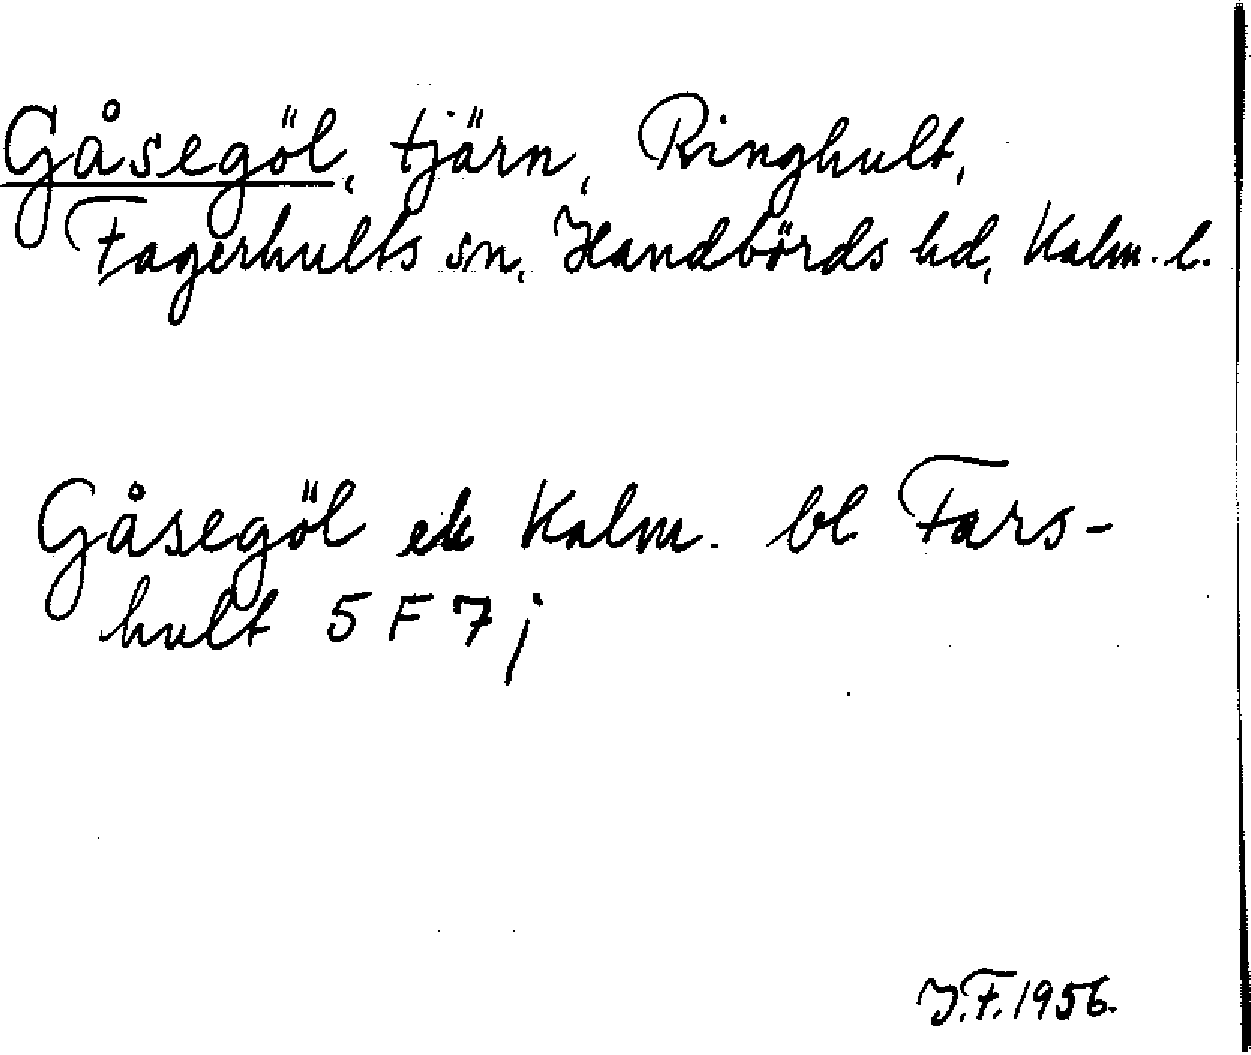 Gåsegöl, tjärn, Ringhult,
Fagerhults sn, Handbörds hd, Kalm. l.
Gåsegöl ek Kalm. bl Fars-
hult 5 F 7 j
J.F. 1956.